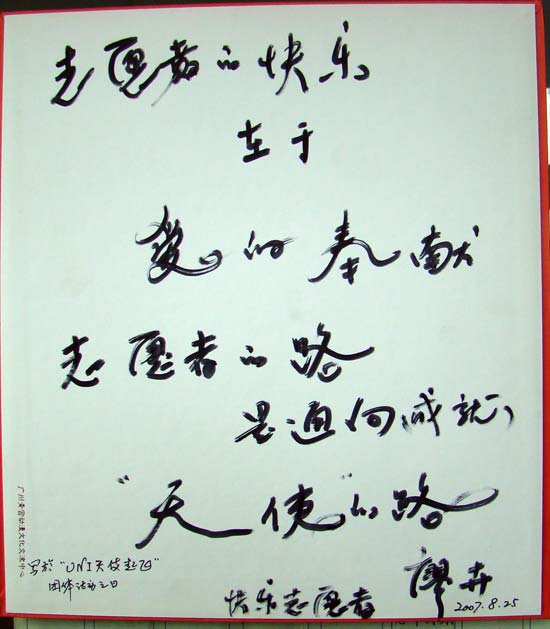 志愿者的快乐
在于
爱的奉献
志愿者的路
是通向成就
"天使"的路
快乐志愿者 廖卉
2007.8.25
写於"UNI天使起飞"
团体活动之日
广州青宫动漫文化交流中心